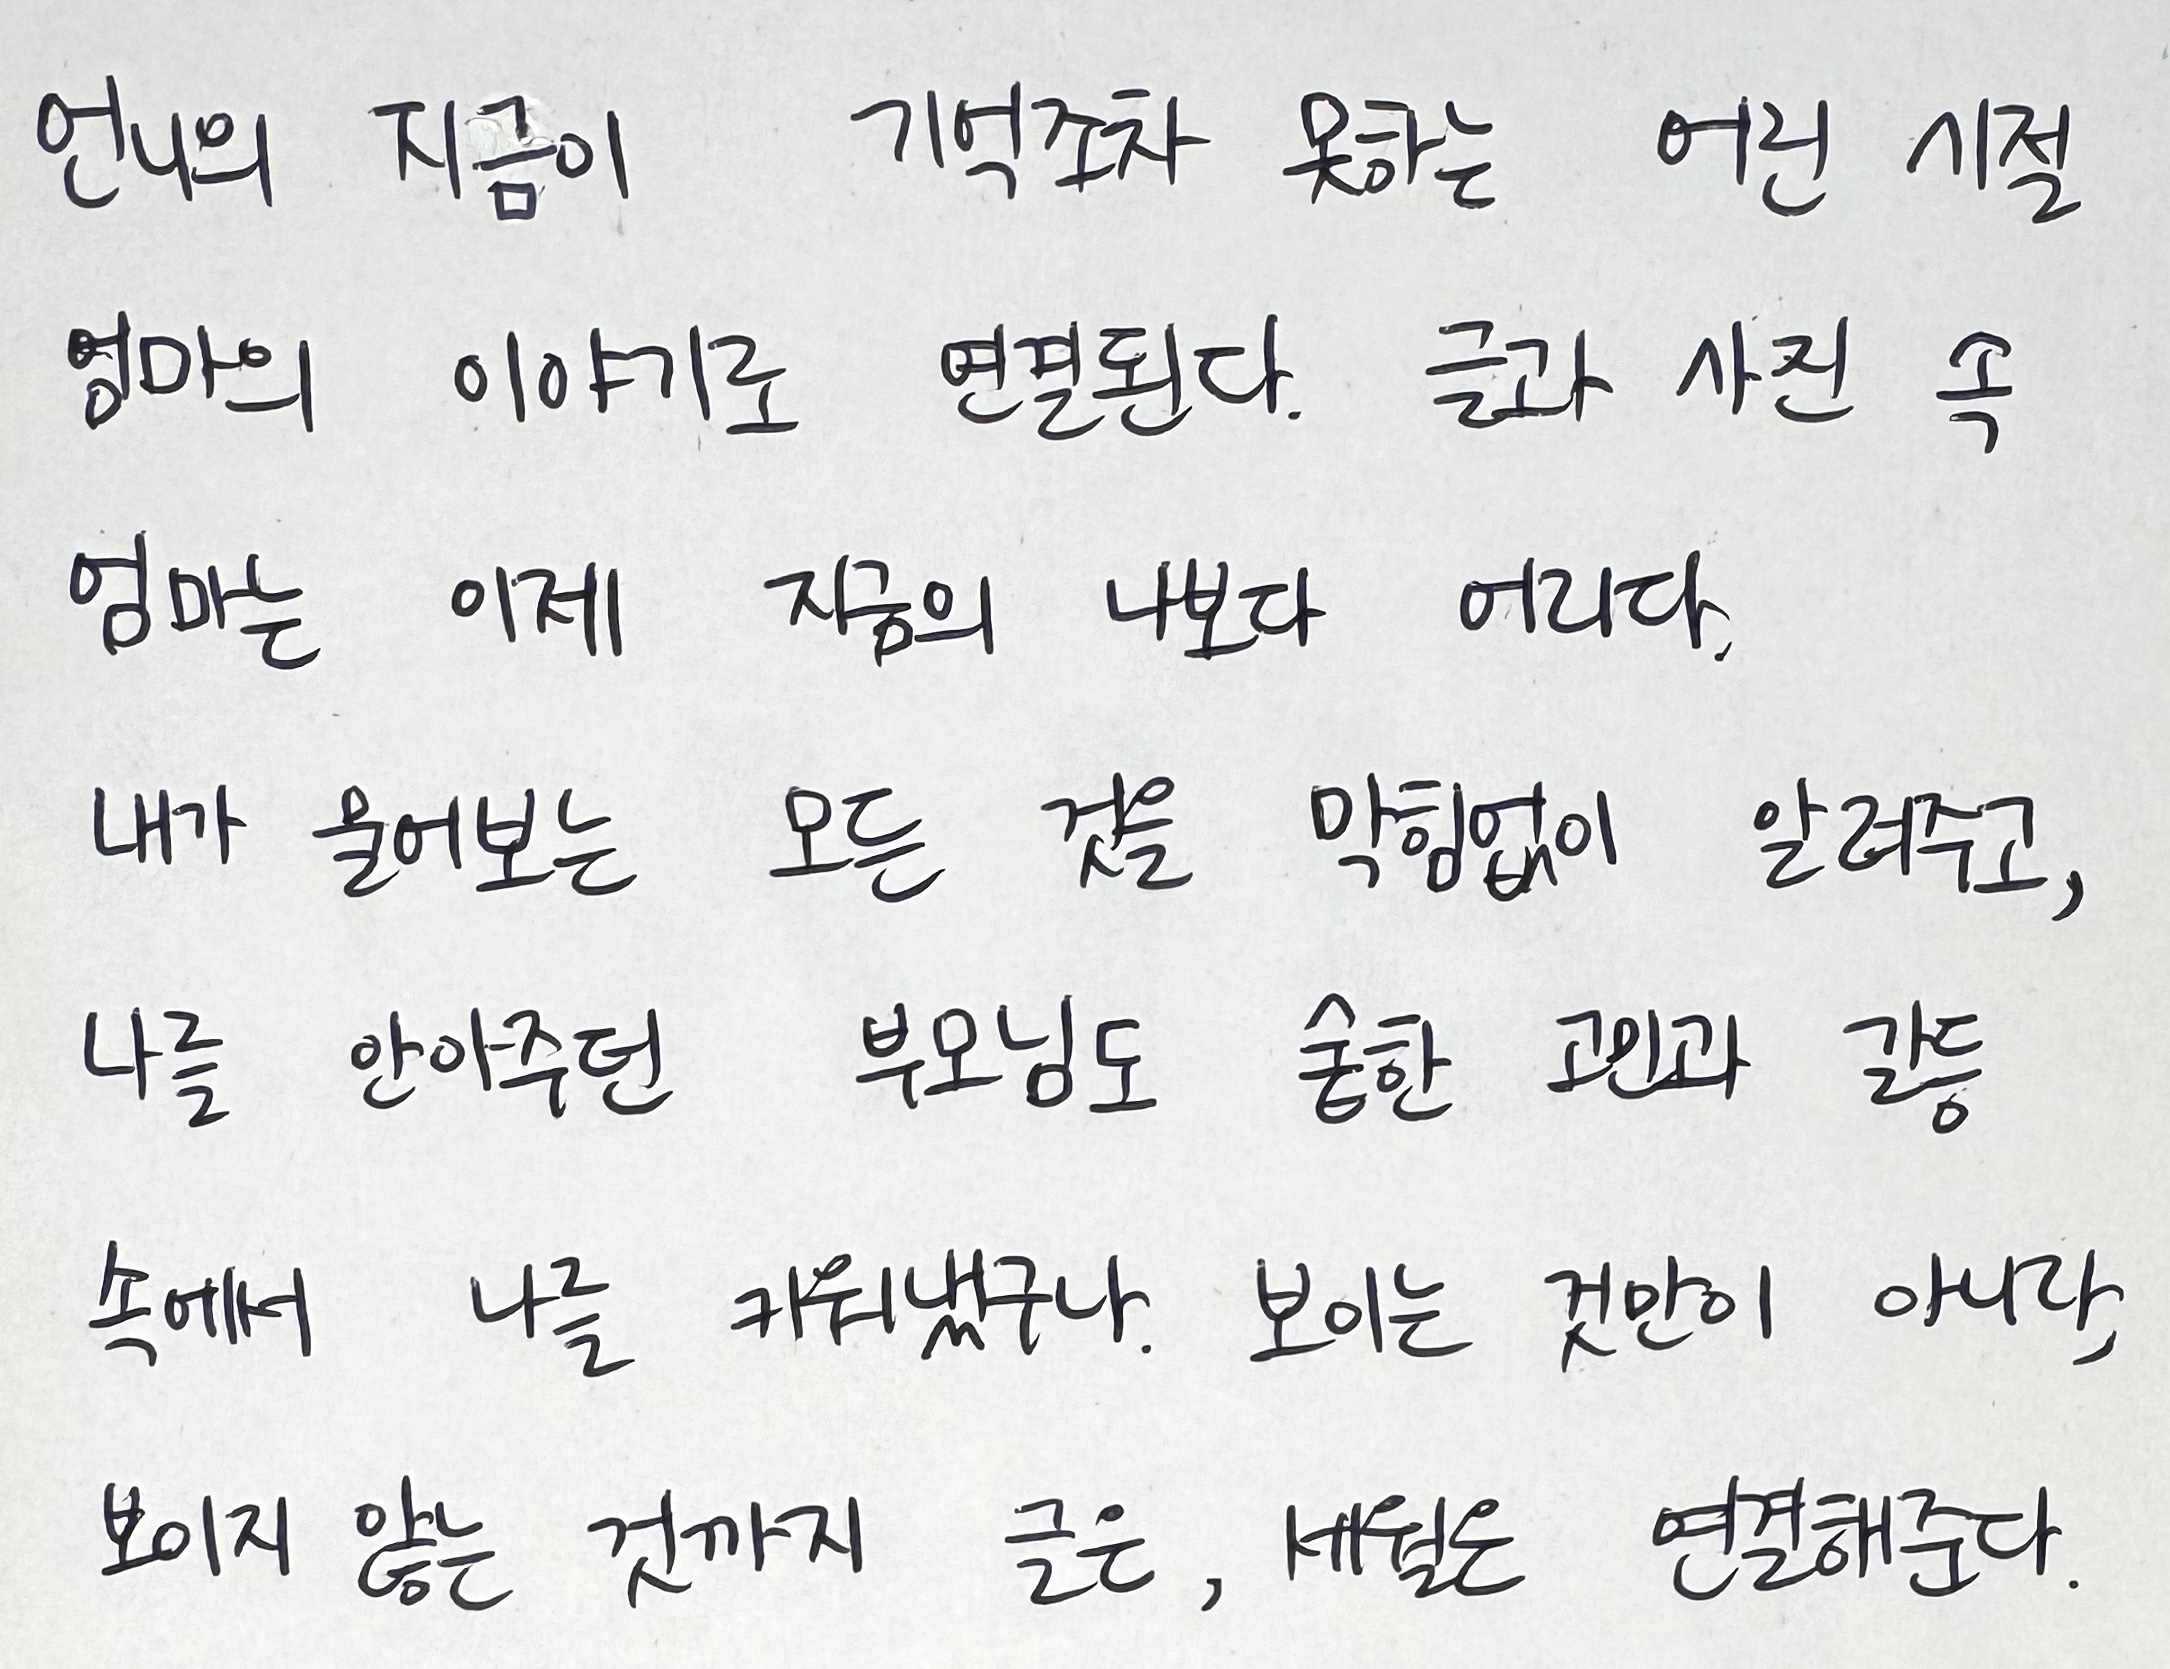 언니의 지금이 기억조차 못하는 어린 시절
엄마의 이야기로 연결된다. 글과 사진 속
엄마는 이제 지금의 나보다 어리다.
내가 물어보는 모든 것을 막힘없이 알려주고,
나를 안아주던 부모님도 숱한 고민과 갈등
속에서 나를 키워냈구나. 보이는 것만이 아니라,
보이지 않는 것까지 글은, 세월은 연결해준다.